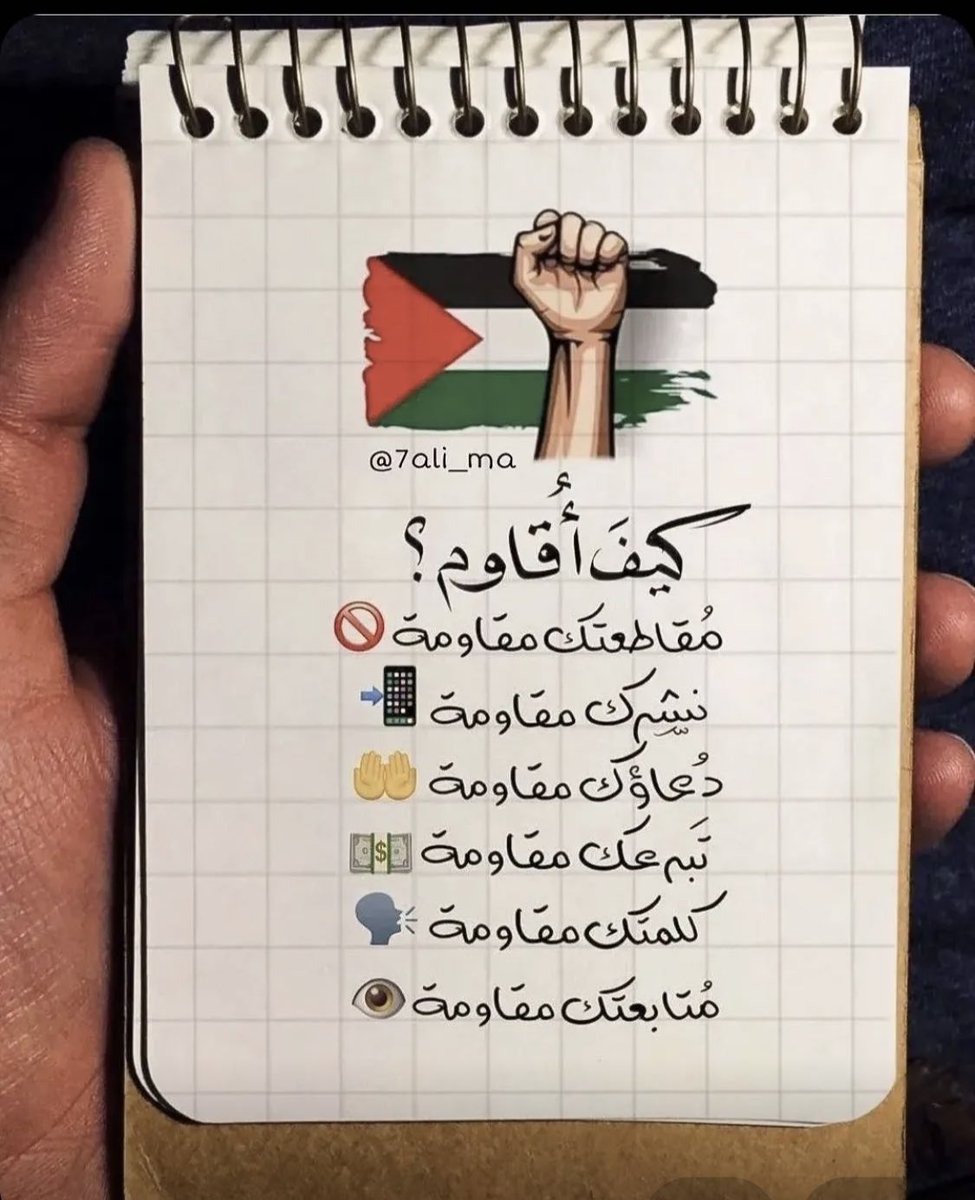 @7ali_ma
كيفَ أُقاوم؟
مُقاطعتك مقاومة
نشرك مقاومة
دُعاؤك مقاومة
تَبرعك مقاومة
كلمتك مقاومة
مُتابعتك مقاومة